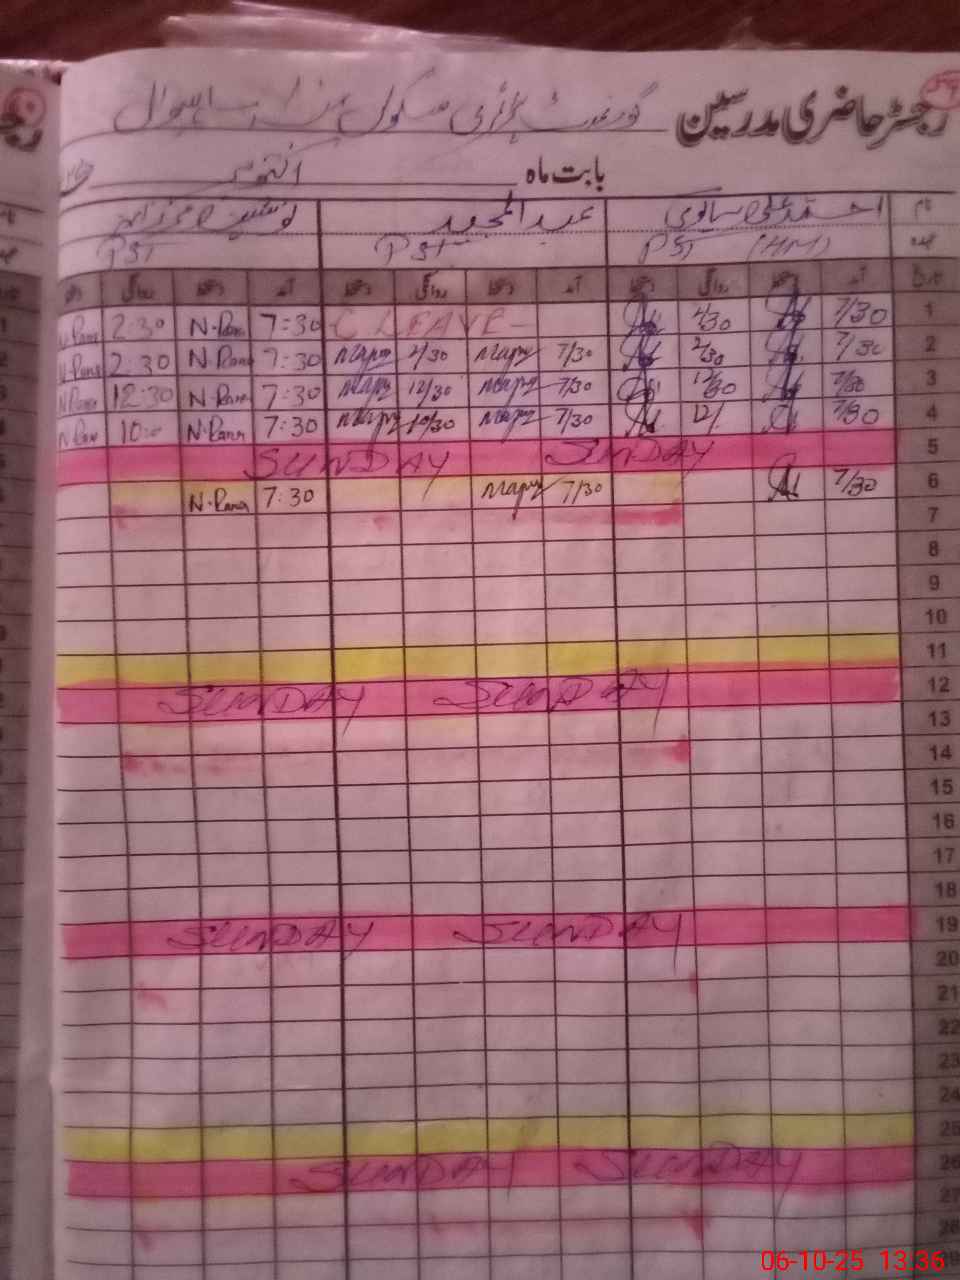 رجسٹر حاضری مدرسین گورنمنٹ پرائمری سکول
بابت ماہ اکتوبر
نام احمد علی ساقی عبدالمجید
عہدہ PST (HM) PST PST
تاریخ آمد دستخط روانگی دستخط آمد دستخط روانگی دستخط آمد دستخط روانگی دستخط
1 7/30 2/30 C. LEAVE - 7:30 N-Rana 2:30 N-Rana
2 7/30 2/30 7/30 2/30 7:30 N-Rana 2:30 N-Rana
3 7/30 12/30 7/30 12/30 7:30 N-Rana 12:30 N-Rana
4 7/30 12/ 7/30 10/30 7:30 N-Rana 10:0 N-Ran
5 SUNDAY SUNDAY
6 7/30 7/30 7:30 N-Rana
7
8
9
10
11
12 SUNDAY SUNDAY
13
14
15
16
17
18
19 SUNDAY SUNDAY
20
21
22
23
24
25
26 SUNDAY SUNDAY
27
28
06-10-25 13.36